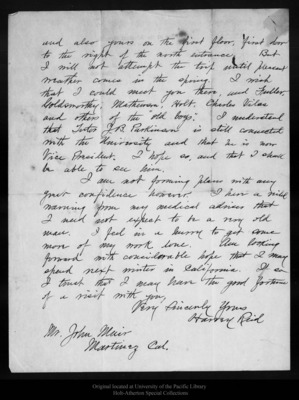 and also yours on the first floor, first door
to the right of the north entrance. But
I will not attempt the trip until pleasant
weather comes in the spring. I wish
that I could meet you there, and Fuller,
Goldsworthy, Mathewson, Holt, Charles Vilas
and others of the old boys. I understand
that Tutor J B Parkinson is still connected
with the University and that he is now
Vice President. I hope so, and that I shall
be able to see him.
I am not forming plans with any
great confidence however. I have a mild
warning from my medical advisers that
I need not expect to be a very old
man. I feel in a hurry to get some
more of my work done. Am looking
forward with considerable hope that I may
spend next winter in California. If so
I trust that I may have the good fortune
of a visit with you,
Very Sincerely Yours
Harvey Reid
Mr. John Muir
Martinez Cal.
Original located at University of the Pacific Library
Holt-Atherton Special Collections